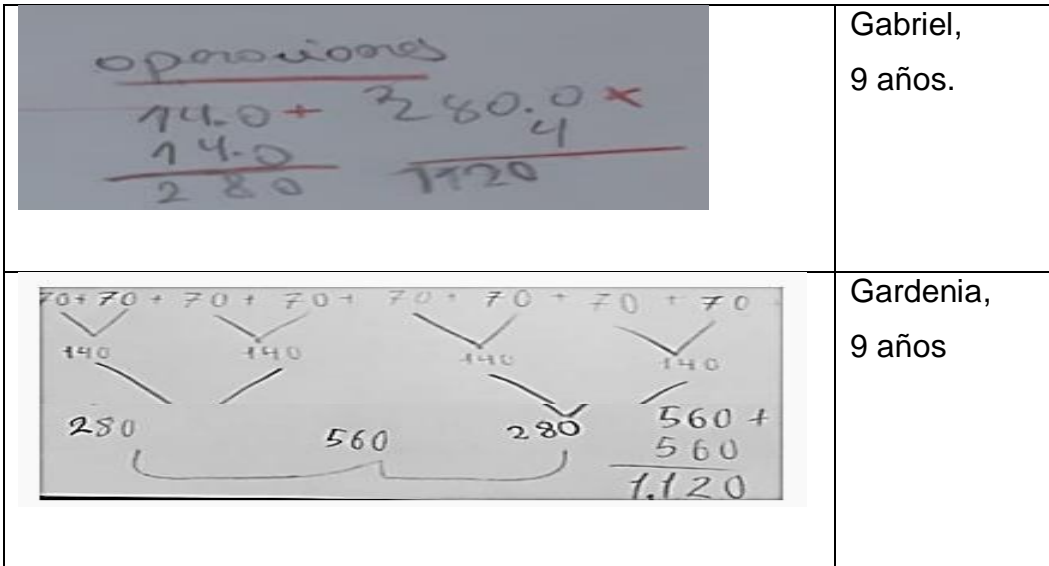 operaciones
14.0 + 280.0 x
14.0 4
280 1120
Gabriel,
9 años.
70 + 70 + 70 + 70 + 70 + 70 + 70 + 70
140 140 140 140
280 560 280 560 +
560
1.120
Gardenia,
9 años